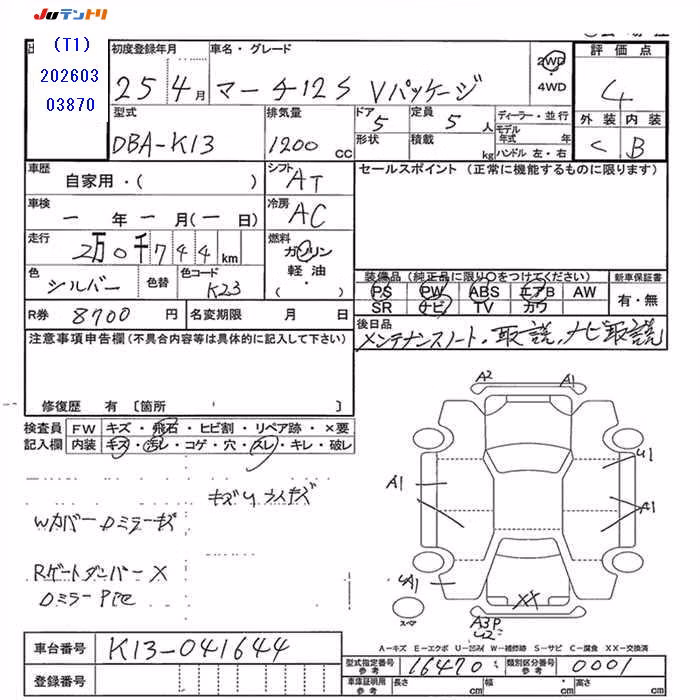 JUテントリ
(T1)
202603
03870
初度登録年月
25 4月
車名・グレード
マーチ12S Vパッケージ
2WD
・
4WD
評価点
4
外装 内装
C B
型式
DBA-K13
排気量
1200 CC
ドア
5
形状
定員
5 人
積載
kg
ディーラー・並行
モデル年式 年
ハンドル 左・右
車歴
自家用・( )
シフト
AT
セールスポイント (正常に機能するものに限ります)
車検
ー 年 ー 月 (ー 日)
冷房
AC
走行
2万0千744km
燃料
ガソリン
軽油・
( )
色
シルバー
色替
色コード
K23
装備品 (純正品に限り○をつけてください)
PS PW ABS エアB AW
SR ナビ TV カワ
新車保証書
有・無
R券 8700 円
名変期限 月 日
後日品
メンテナンスノート、取説、ナビ取説
注意事項申告欄 (不具合内容等は具体的に記入して下さい)
修復歴 有 〔箇所 〕
検査員
記入欄
FW キズ・飛石・ヒビ割・リペア跡・×要
内装 キズ・汚レ・コゲ・穴・スレ・キレ・破レ
Wカバー Dミラーキズ
Rゲートダンパー X
A2
A1
A1
A1
A3P
XX
スペア
A-キズ E-エクボ U-凹み W-補修跡 S-サビ C-腐食 XX-交換済
車台番号 K13-041644
登録番号
型式指定番号 参考 16470
類別区分番号 参考 0001
車庫証明用 参考 長さ cm 幅 cm 高さ cm